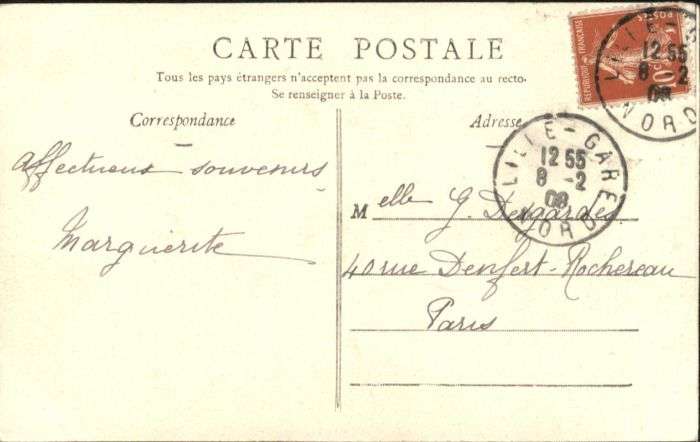 CARTE POSTALE
Tous les pays étrangers n'acceptent pas la correspondance au recto-
Se renseigner à la Poste.
Correspondance
Adresse
Affectueux souvenirs
Marguerite
Melle G. Desgardes
40 rue Denfert-Rochereau
Paris
LILLE-GARE
12 55
8 -2
08
NORD
REPUBLIQUE FRANÇAISE
POSTES
10c
LILLE
12 55
8 -2
08
NORD